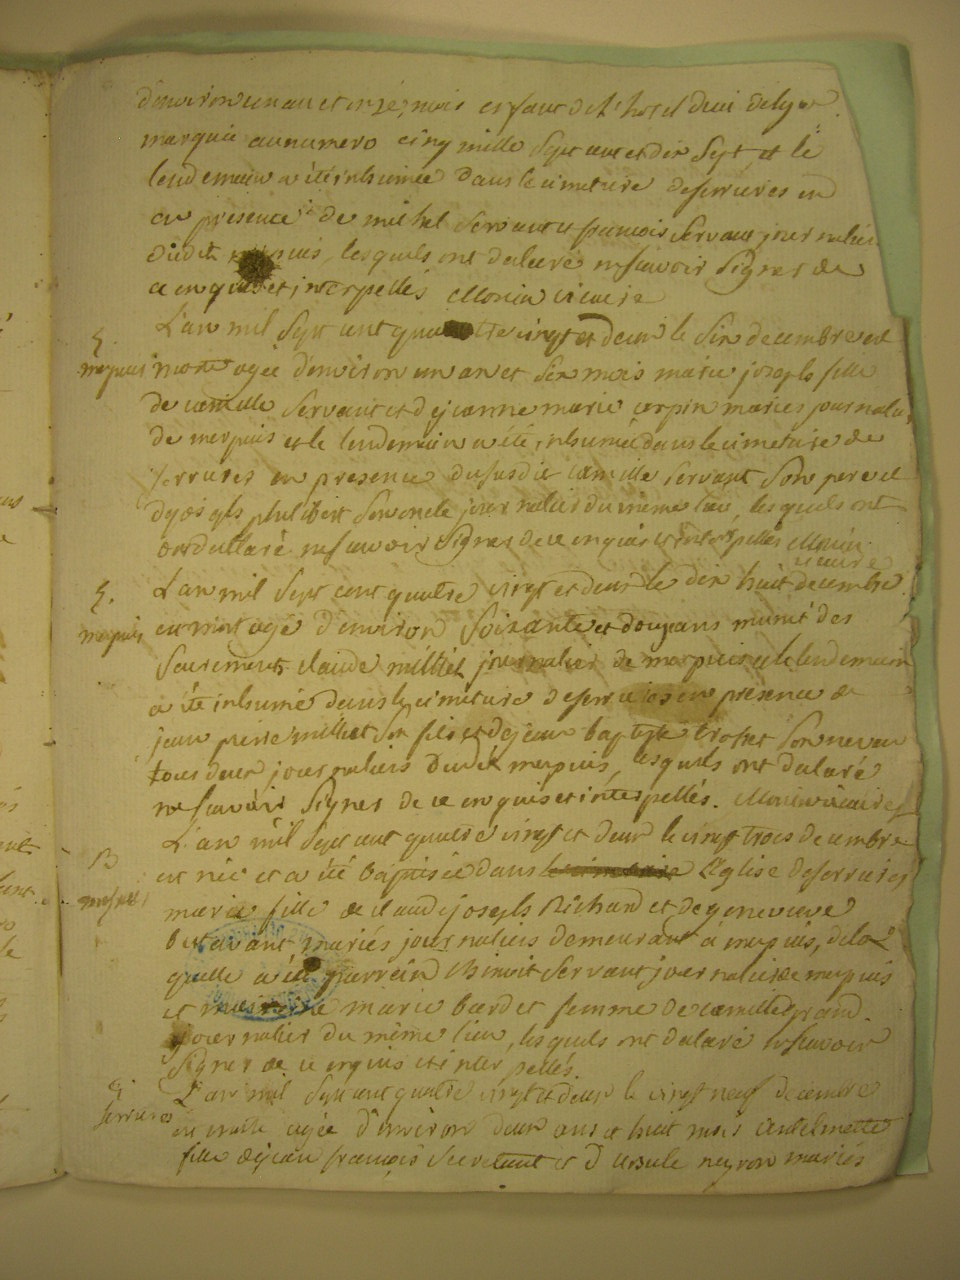 d'environ un an et onze mois enfant de l'hotel dieu de lyon
marquée au numero cinq mille sept cent et dix sept, et le
lendemain a été inhumée dans le cimetiere deserrieres en
en presence de michel servant et francois servant journaliers
dudit merpuis, lesquels ont declaré ne scavoir signer de
ce enquis et interpellés Monin vicaire
L'an mil sept cent quatre vingt et deux le six decembre est
S.
merpuis morte agée d'environ un an et six mois marie joseph fille
de camille servant et de jeanne marie carpin mariés journaliers
de merpuis et le lendemain a été inhumée dans le cimetiere de
serrieres en presence du susdit camille servant son pere et
de joseph philibert son oncle journalier du même lieu, lesquels ont
ont declaré ne scavoir signer de ce enquis et interpellés Monin
vicaire
S. L'an mil sept cent quatre vingt et deux le dix huit decembre
merpuis est mort agé d'environ soixante et douze ans muni des
sacrements claude milliet journalier de merpuis et le lendemain
a été inhumé dans le cimetiere deserrieres en presence de
jean pierre milliet son fils et de jean baptiste trosset son neveu
tous deux journaliers dudit merpuis, lesquels ont declaré
ne scavoir signer de ce enquis et interpellés. Monin vicaire
L'an mil sept cent quatre vingt et deux le vingt trois decembre
B
est née et a été baptisée dans le cimetiere l'Eglise deserrieres
merpuis
marie fille de claude joseph Richard et de genevieve
mariés journaliers demeurant à merpuis, de la
quelle a été parrein benoit servant journalier de merpuis
et marreine marie bardet femme de camille grand
journalier du même lieu, lesquels ont declaré ne scavoir
signer de ce enquis et interpellés.
S. L'an mil sept cent quatre vingt et deux le vingt neuf decembre
serrieres est morte agée d'environ deux ans et huit mois Antelmette
fille de jean françois servant et d'ursule neyron mariés